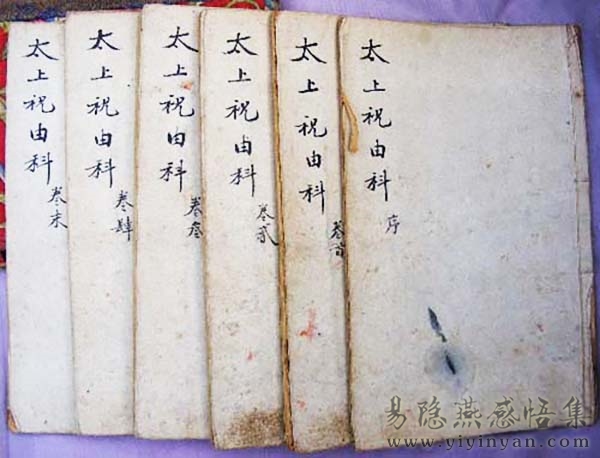 太上祝由科
序
太上祝由科
卷首
太上祝由科
卷贰
太上祝由科
卷叁
太上祝由科
卷肆
太上祝由科
卷末
易隐燕感悟集
www.yiyinyan.com